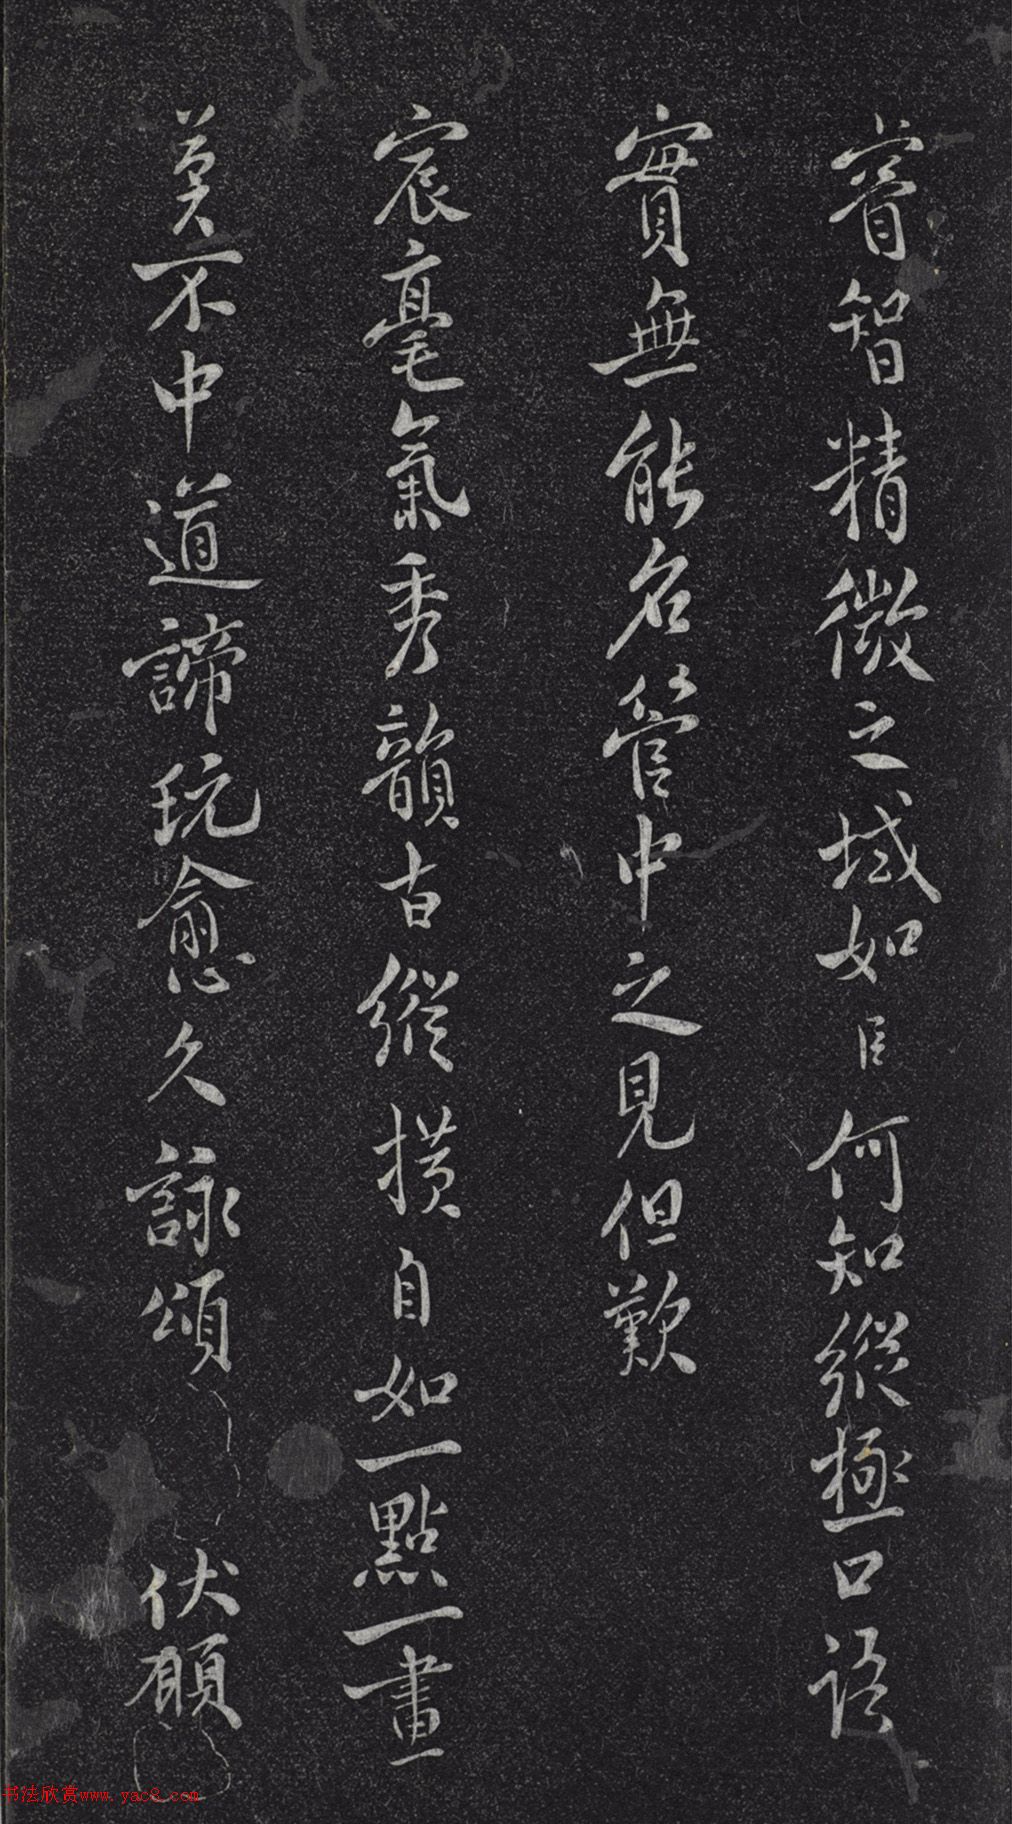 睿智精微之域如臣何知縱極口語
實無能名管中之見但歎
宸毫氣秀韻古縱横自如一點一畫
莫不中道諦玩愈久詠頌伏願
书法欣赏www.yac8.com